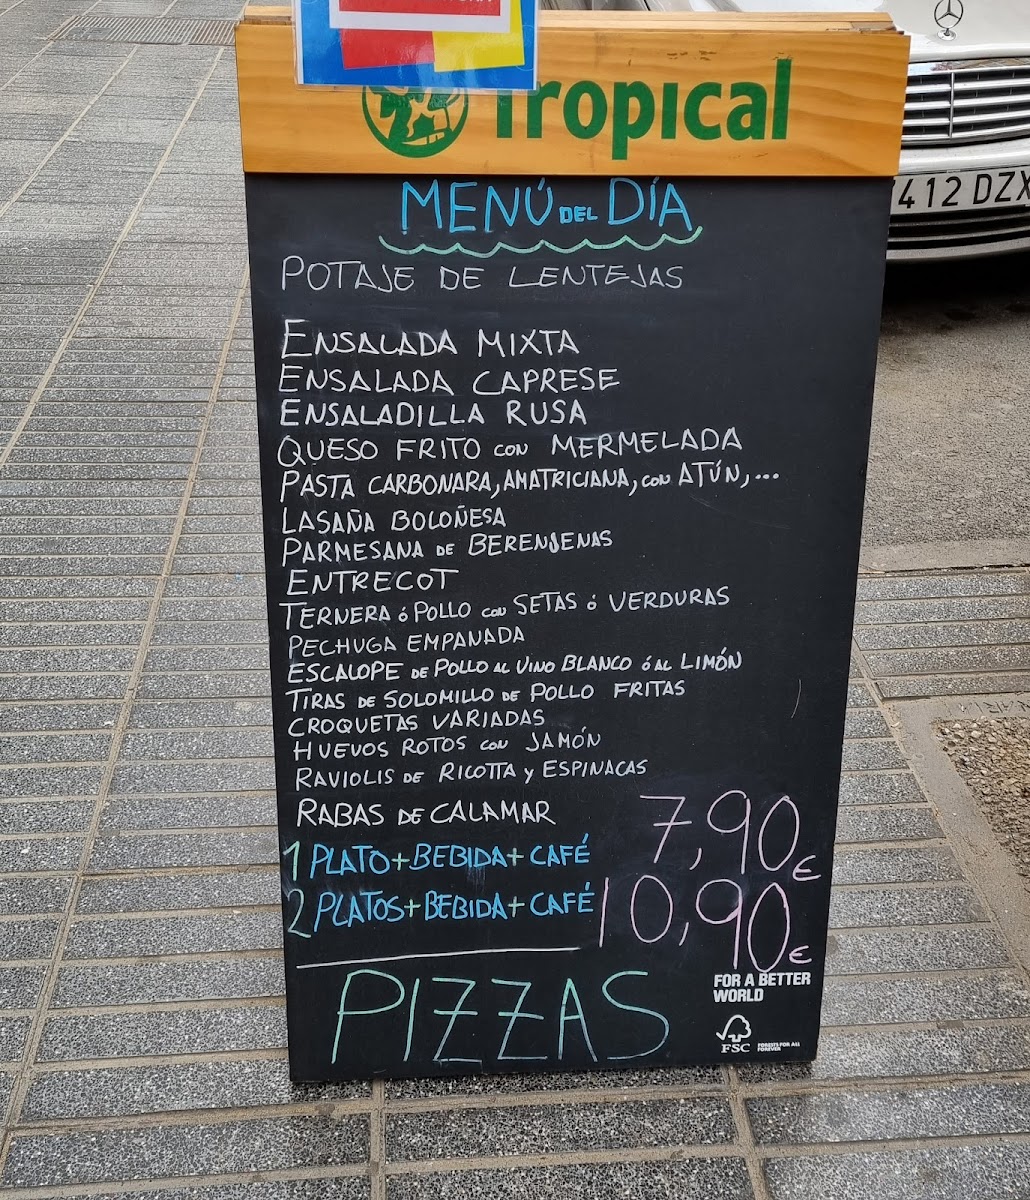 Tropical
MENÚ DEL DÍA
POTAJE DE LENTEJAS
ENSALADA MIXTA
ENSALADA CAPRESE
ENSALADILLA RUSA
QUESO FRITO CON MERMELADA
PASTA CARBONARA, AMATRICIANA, CON ATÚN, ...
LASAÑA BOLOÑESA
PARMESANA DE BERENJENAS
ENTRECOT
TERNERA ó POLLO CON SETAS ó VERDURAS
PECHUGA EMPANADA
ESCALOPE DE POLLO AL VINO BLANCO ó AL LIMÓN
TIRAS DE SOLOMILLO DE POLLO FRITAS
CROQUETAS VARIADAS
HUEVOS ROTOS CON JAMÓN
RAVIOLIS DE RICOTTA Y ESPINACAS
RABAS DE CALAMAR
1 PLATO+BEBIDA+CAFÉ 7,90€
2 PLATOS+BEBIDA+CAFÉ 10,90€
PIZZAS
FOR A BETTER
WORLD
FSC
FORESTS FOR ALL
FOREVER
412 DZX